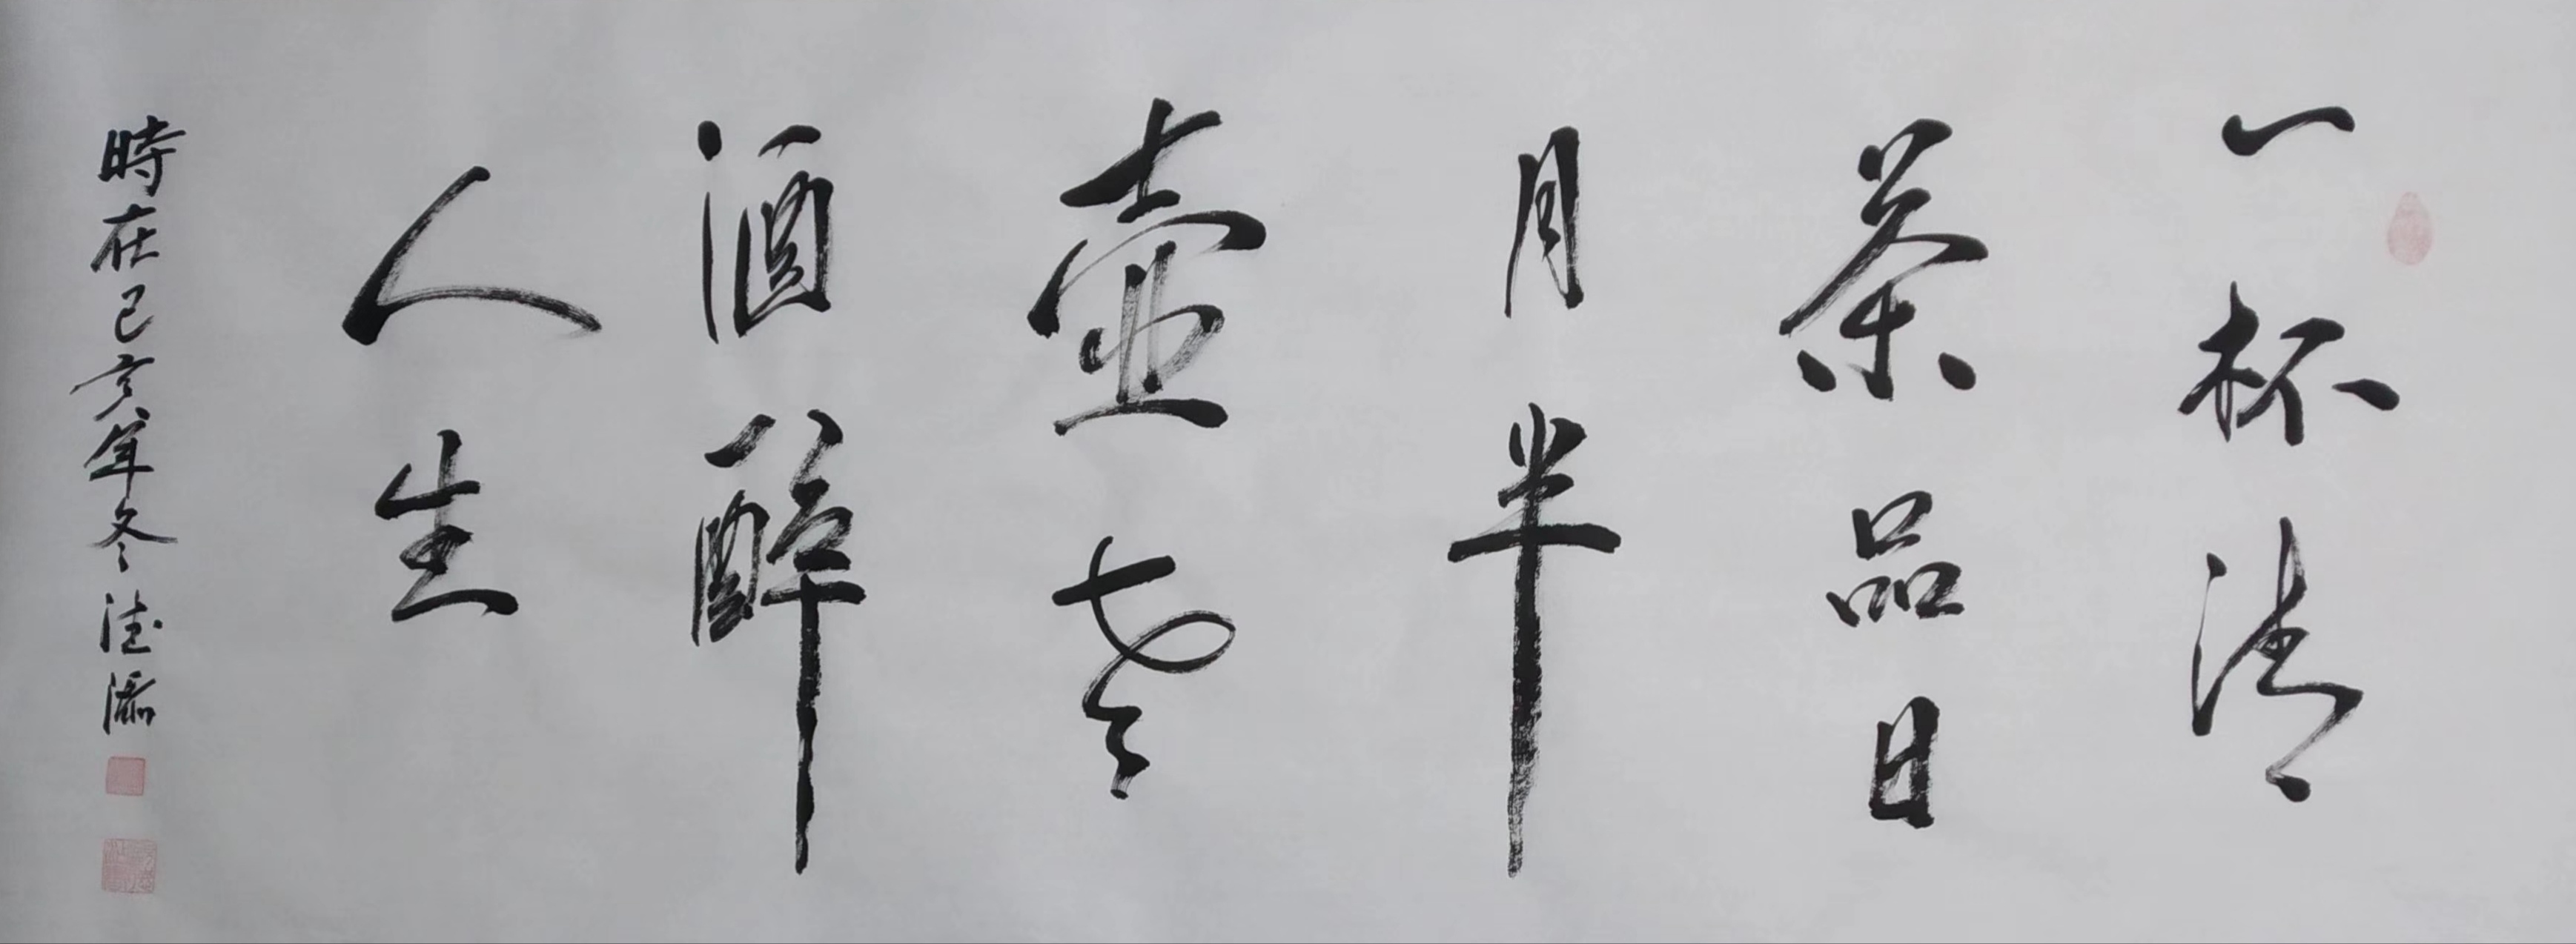 一杯清
茶品日
月半
壶老
酒醉
人生
時在己亥年冬德潘